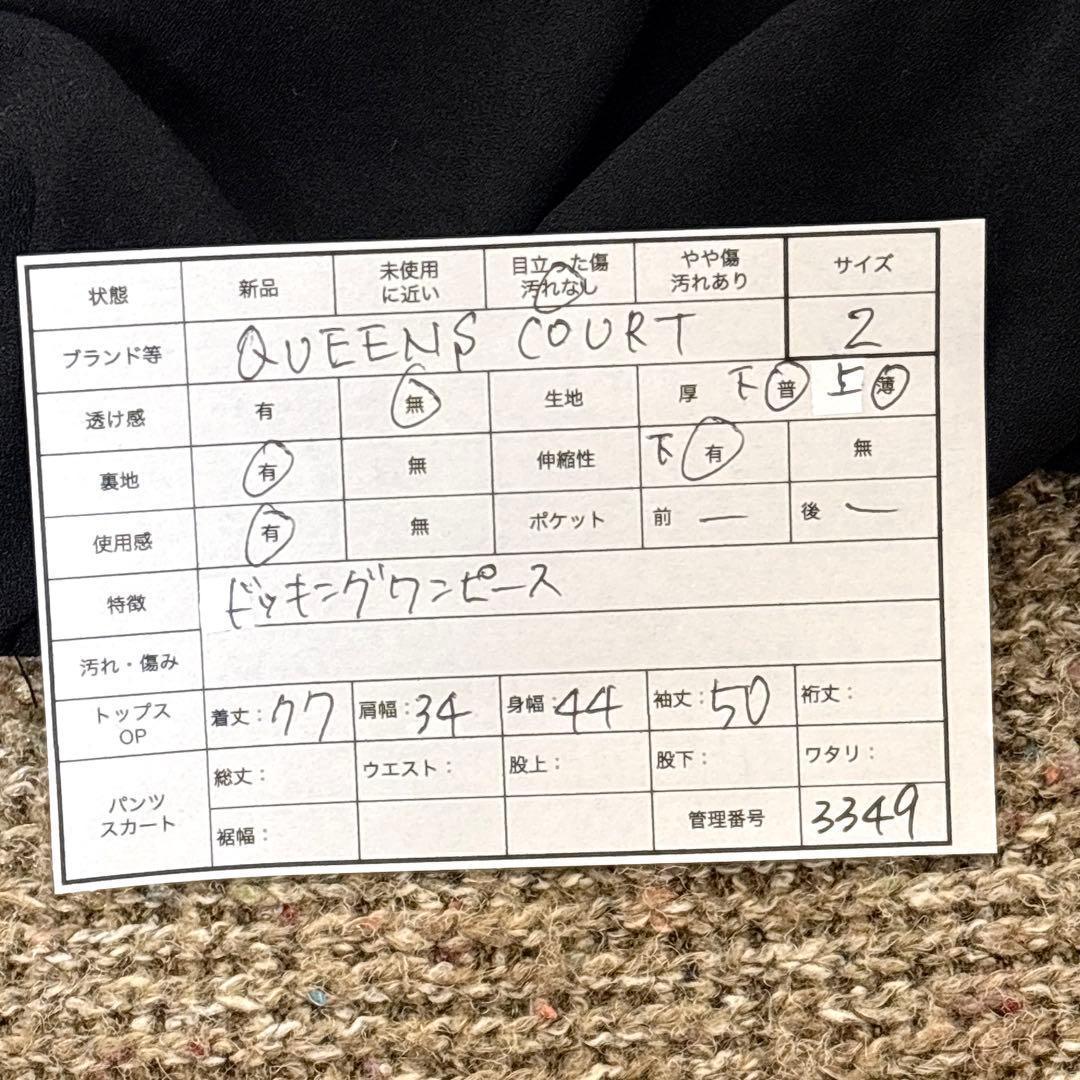 状態 新品 未使用に近い 目立った傷汚れなし やや傷汚れあり サイズ
ブランド等 QUEENS COURT 2
透け感 有 無 生地 厚 下 普 上 薄
裏地 有 無 伸縮性 下 有 無
使用感 有 無 ポケット 前 ー 後 ー
特徴 ドッキングワンピース
汚れ・傷み
トップス OP 着丈：77 肩幅：34 身幅：44 袖丈：50 裄丈：
パンツ スカート 総丈： ウエスト： 股上： 股下： ワタリ：
裾幅： 管理番号 3349